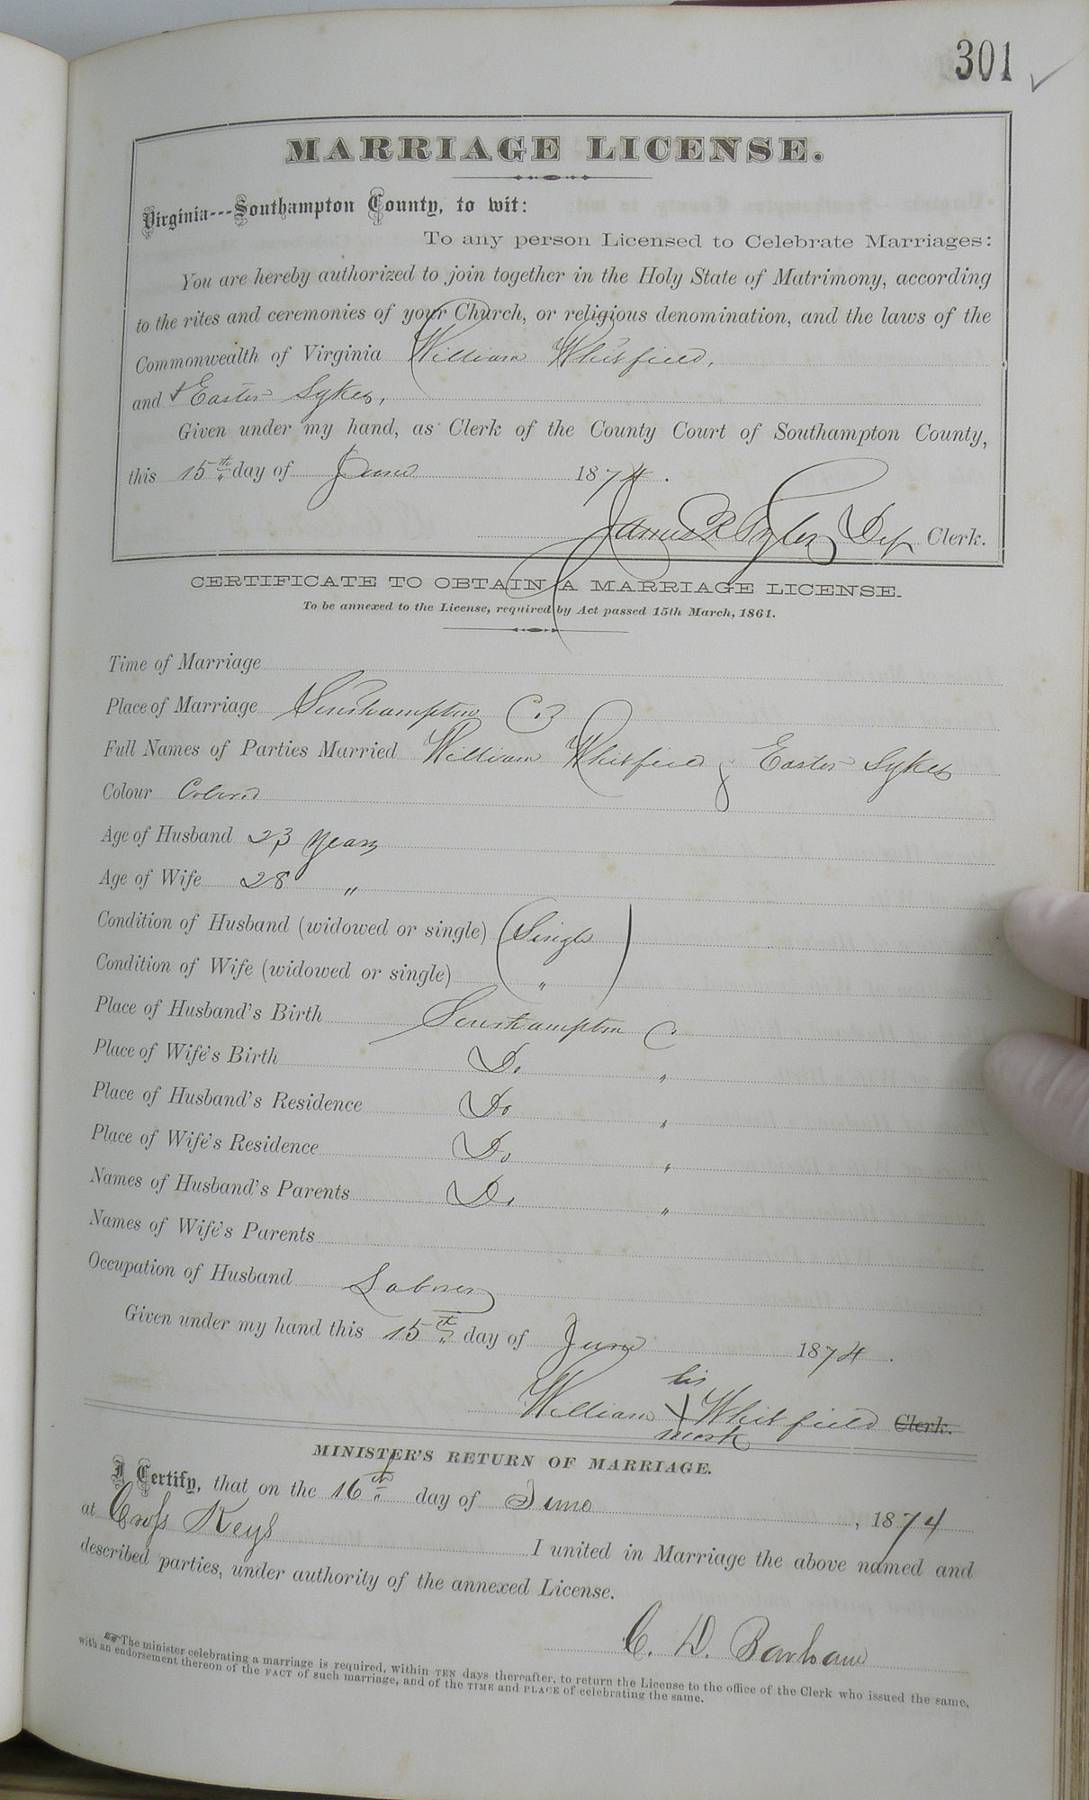 301
MARRIAGE LICENSE.
Virginia---Southampton County, to wit:
To any person Licensed to Celebrate Marriages:
You are hereby authorized to join together in the Holy State of Matrimony, according
to the rites and ceremonies of your Church, or religious denomination, and the laws of the
Commonwealth of Virginia William Whitfield,
and Easter Sykes,
Given under my hand, as Clerk of the County Court of Southampton County,
this 15th day of June 1874.
James R Pyler Dep Clerk.
CERTIFICATE TO OBTAIN A MARRIAGE LICENSE.
To be annexed to the License, required by Act passed 15th March, 1861.
Time of Marriage
Place of Marriage Southampton Co
Full Names of Parties Married William Whitfield & Easter Sykes
Colour Colored
Age of Husband 23 years
Age of Wife 28 "
Condition of Husband (widowed or single) (Single)
Condition of Wife (widowed or single) "
Place of Husband's Birth Southampton C.
Place of Wife's Birth Do "
Place of Husband's Residence Do "
Place of Wife's Residence Do "
Names of Husband's Parents Do "
Names of Wife's Parents
Occupation of Husband Laborer
Given under my hand this 15th day of June 1874.
his
William X Whitfield Clerk.
mark
MINISTER'S RETURN OF MARRIAGE.
I Certify, that on the 16th day of June, 1874
at Cross Keys I united in Marriage the above named and
described parties, under authority of the annexed License.
C. D. Barham
The minister celebrating a marriage is required, within TEN days thereafter, to return the License to the office of the Clerk who issued the same,
with an endorsement thereon of the FACT of such marriage, and of the TIME and PLACE of celebrating the same.